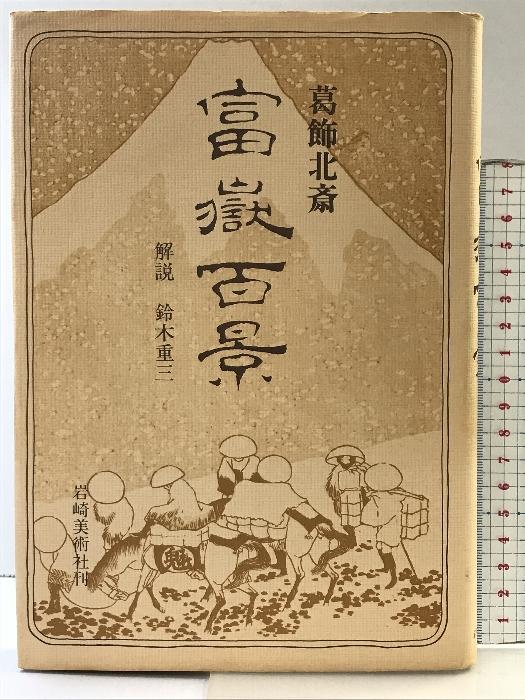 葛飾北斎
富嶽百景
解説 鈴木重三
岩崎美術社刊